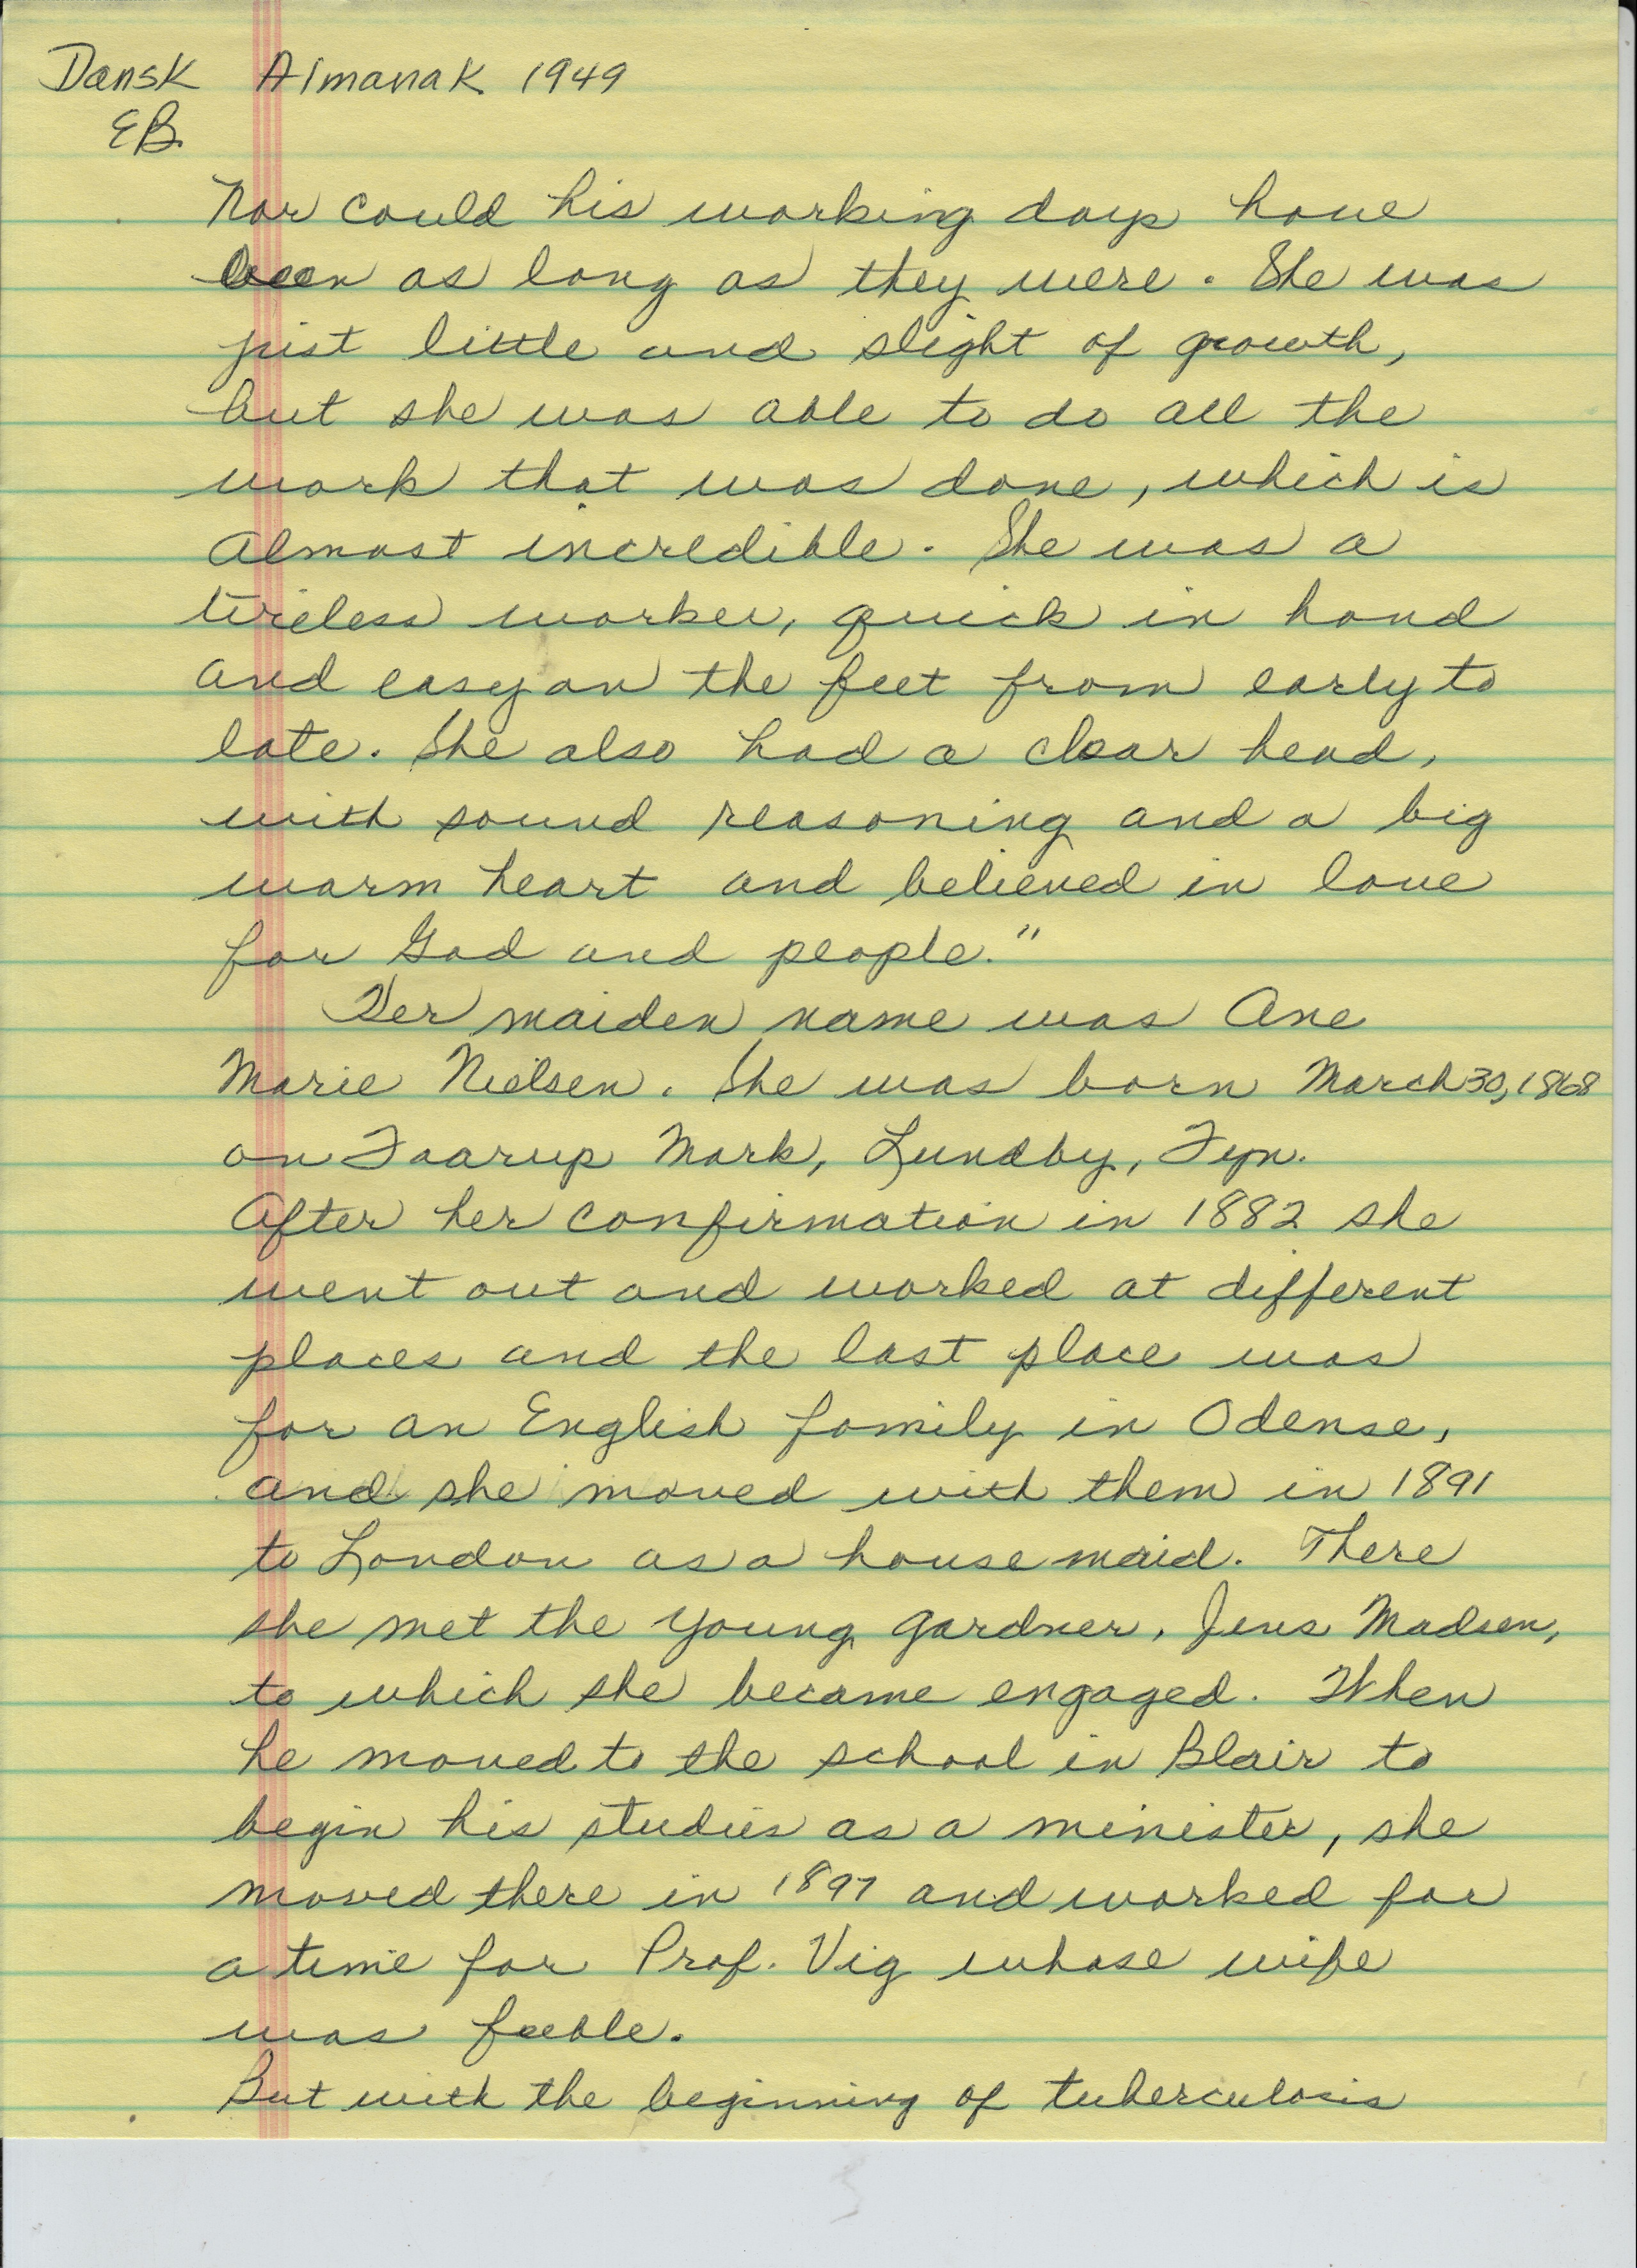 Dansk Almanak 1949
EB
Nor could his working days have
been as long as they were. She was
just little and slight of growth,
but she was able to do all the
work that was done, which is
almost incredible. She was a
tireless worker, quick in hand
and easy on the feet from early to
late. She also had a clear head,
with sound reasoning and a big
warm heart and believed in love
for God and people."
Her maiden name was Ane
Marie Nielsen. She was born March 30, 1868
on Faarup Mark, Lundby, Fyn.
After her confirmation in 1882 she
went out and worked at different
places and the last place was
for an English family in Odense,
and she moved with them in 1891
to London as a house maid. There
she met the young gardner, Jens Madsen,
to which she became engaged. When
he moved to the school in Blair to
begin his studies as a minister, she
moved there in 1897 and worked for
a time for Prof. Vig whose wife
was feeble.
But with the beginning of tuberculosis